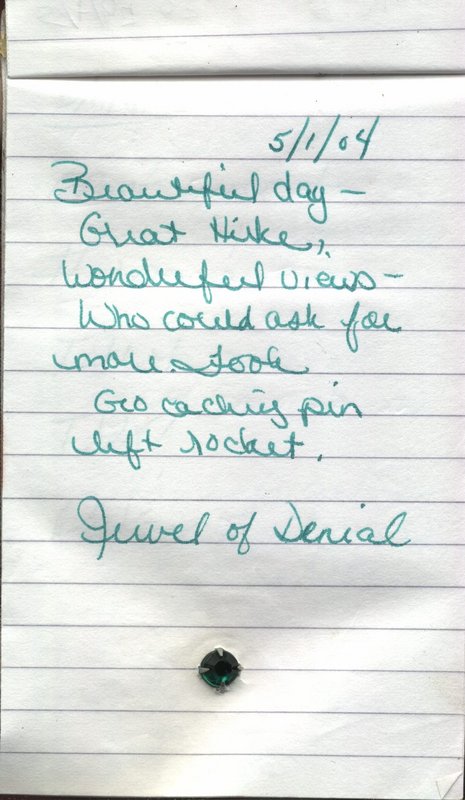 5/1/04
Beautiful day -
Great Hike,
Wonderful views -
Who could ask for
more. Took
Geocaching pin
left rocket.
Jewel of Denial